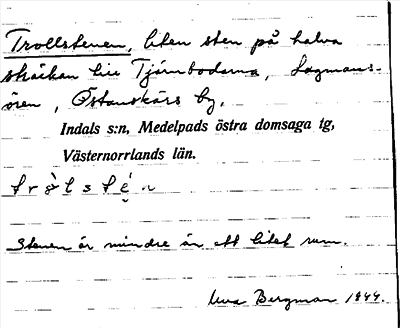 Trollstenen, liten sten på halva
sträckan till Tjärnbodarna, Lagmans-
ören, Östanskärs by,
Indals s:n, Medelpads östra domsaga tg,
Västernorrlands län.
Stenen är mindre än ett litet rum.
Bergman 1944.